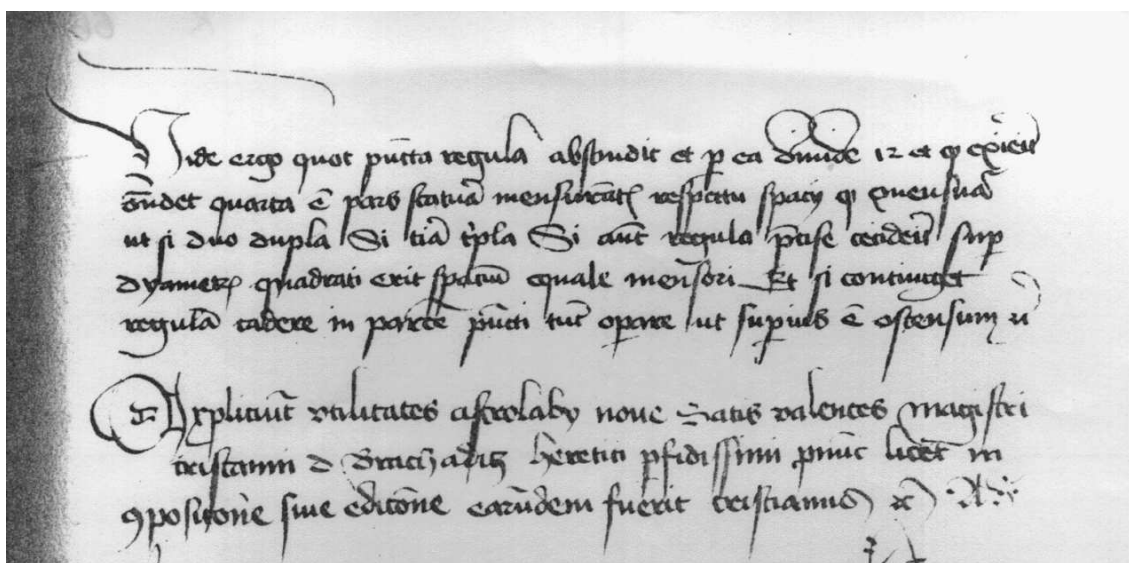 Vide ergo quot pūcta regula abscindit et p ea diuide 12 et qͦ exierit
ōndet quarta ē pars statura mensurāt respectu spacij qͦ mensurā
ut si duo dupla Si tria tripla Si aūt regula p̄cise ceciderit sup
dyametr quadrati erit spaciū equale mensori Et si continget
regulā cadere in partē pūcti tūc opare ut supius ē ostensum
Expliciūt vtilitates astrolabij noue satis valentes magistri
cristanni d heretici pfidissimi licet in
ꝯposicōne siue edicōne earūdem fuerit cristianus